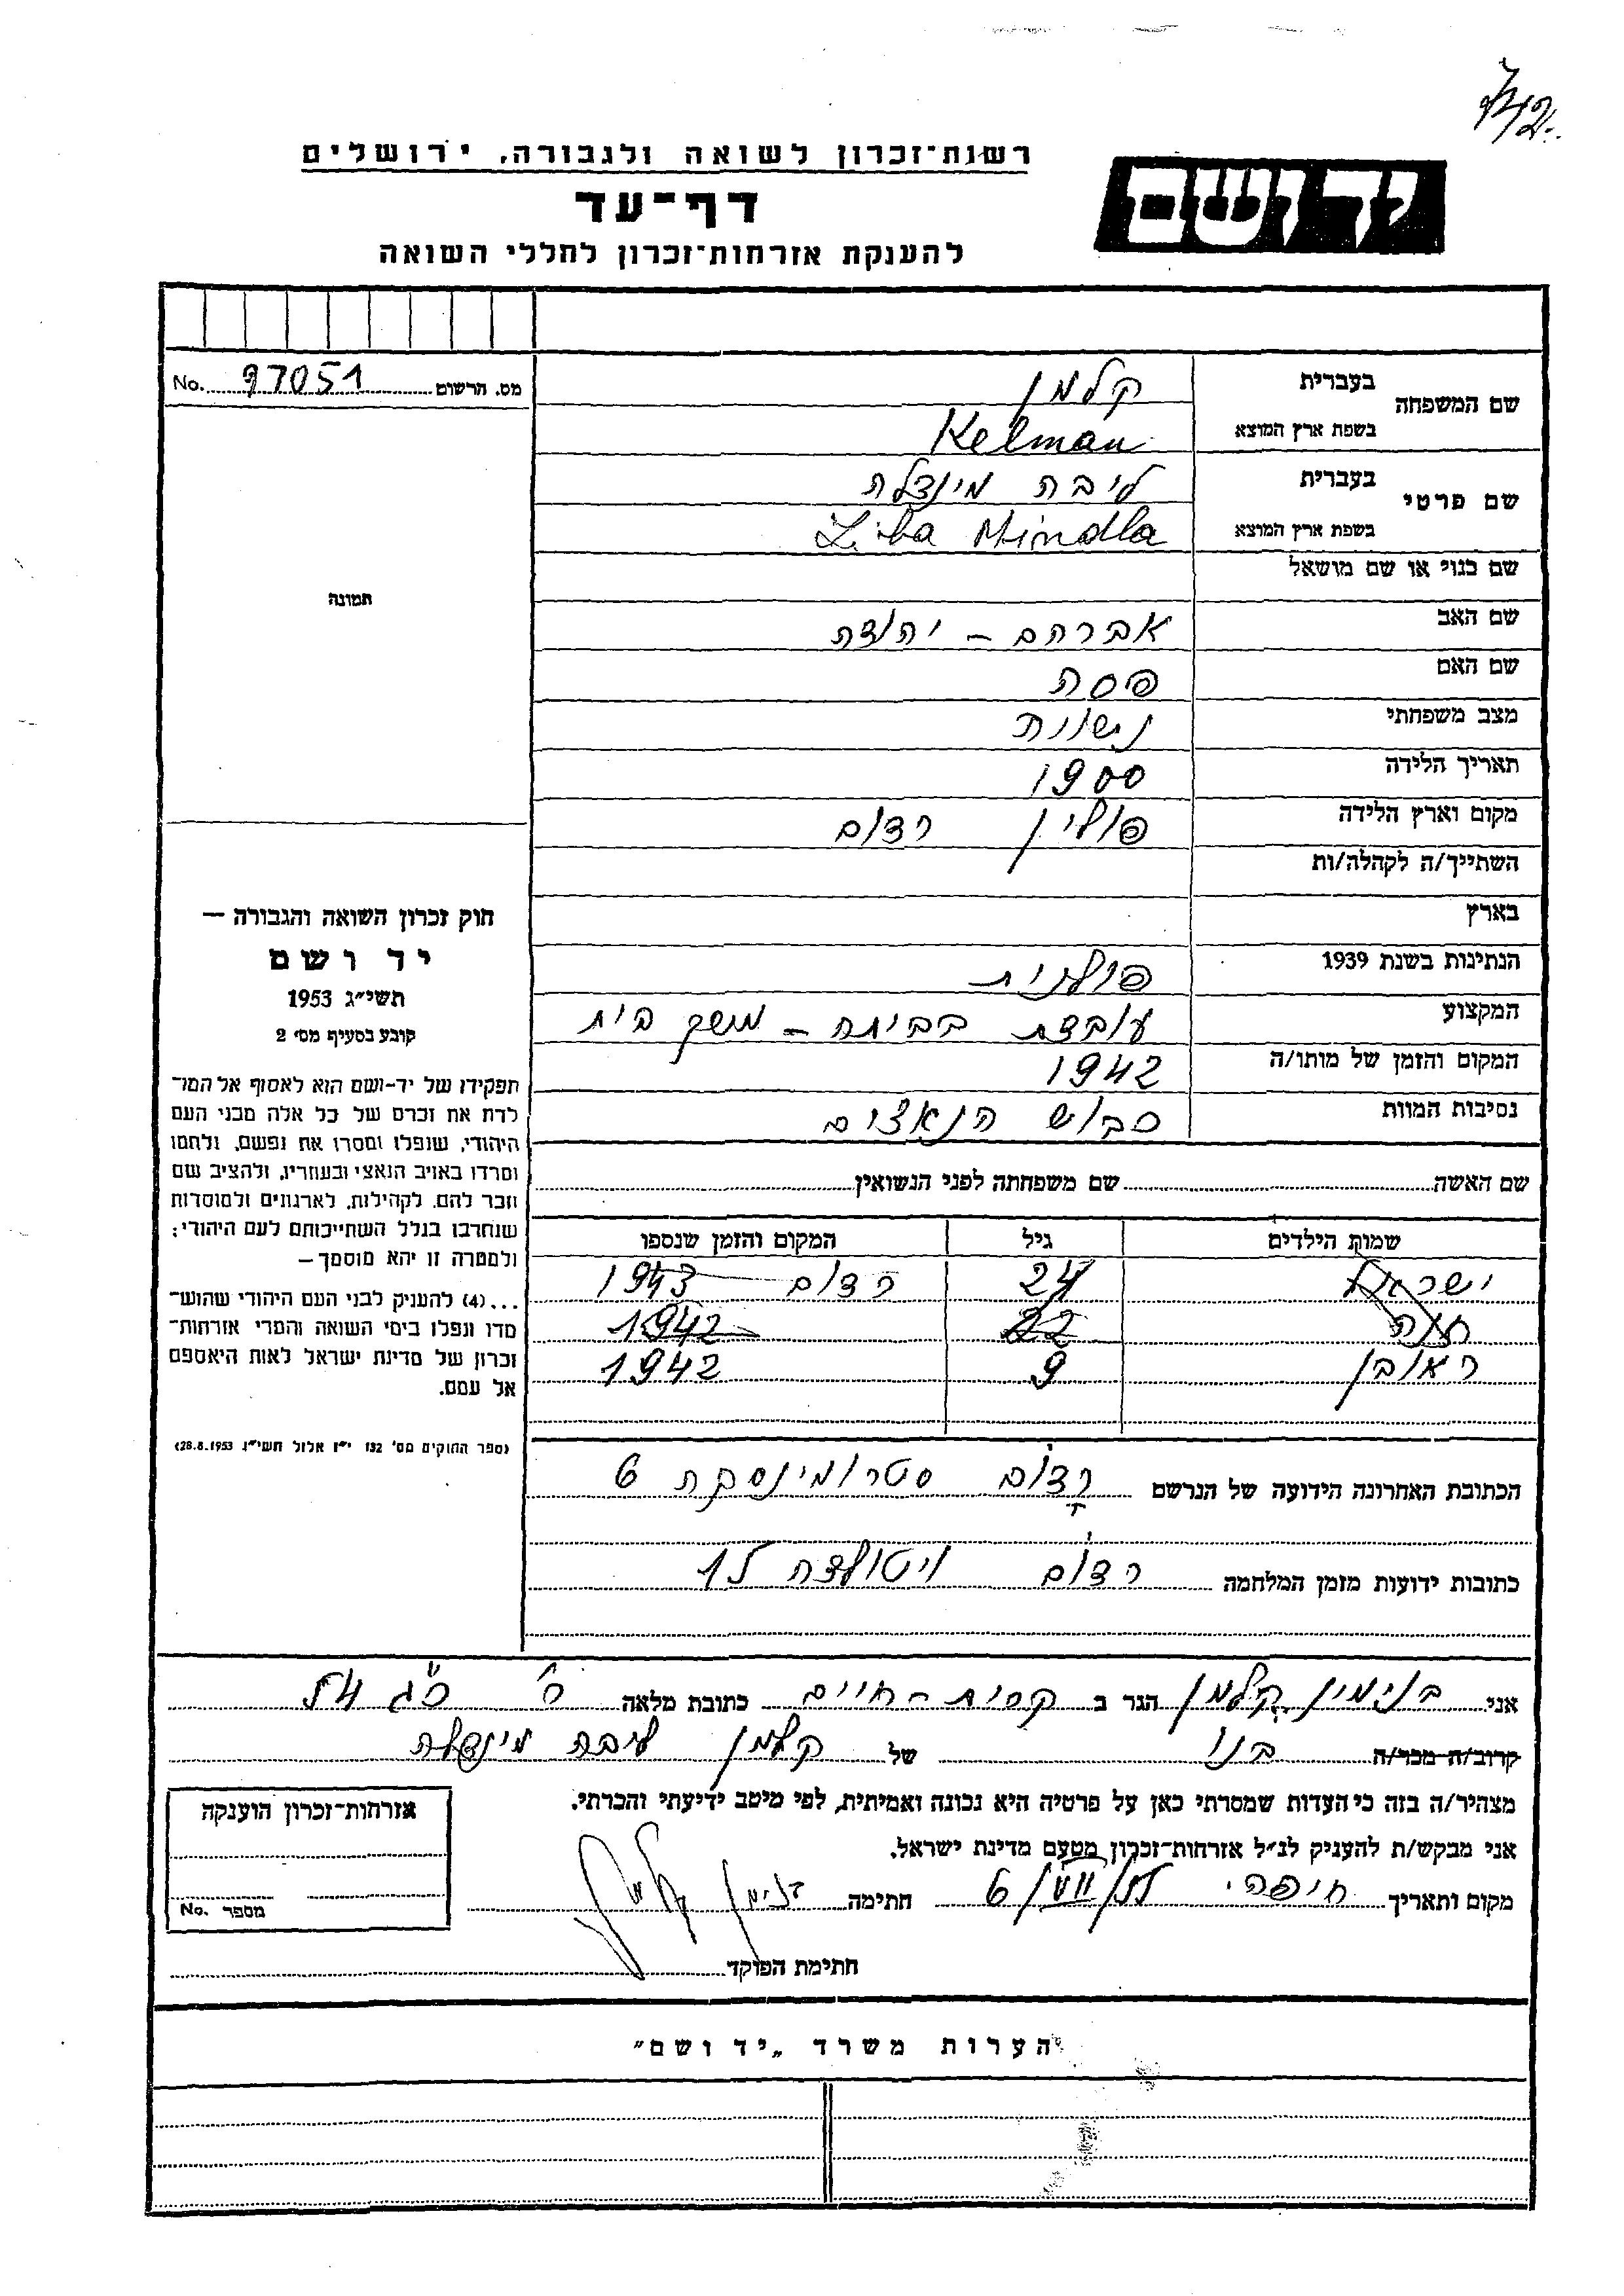 רשות-זכרון לשואה ולגבורה, ירושלים
יד ושם
דף-עד
להענקת אזרחות-זכרון לחללי השואה
מס. הרשום No. 97051
שם המשפחה
בעברית קלמן
בשפת ארץ המוצא Kelman
שם פרטי
בעברית ליבה מינדלה
בשפת ארץ המוצא Liba Mindla
שם כנוי או שם מושאל
שם האב אברהם - יהודה
שם האם פסה
מצב משפחתי נשואה
תאריך הלידה 1900
מקום וארץ הלידה פולין רדום
השתייך/ה לקהלה/ות
בארץ
הנתינות בשנת 1939 פולנית
המקצוע עובדת בביתה - משק בית
המקום והזמן של מותו/ה 1942
נסיבות המוות כבוש הנאצים
שם האשה שם משפחתה לפני הנשואין
שמות הילדים גיל המקום והזמן שנספו
ישראל 24 רדום 1943
חנה 22 1942
ראובן 9 1942
הכתובת האחרונה הידועה של הנרשם רדום סטרומינסקה 6
כתובות ידועות מזמן המלחמה רדום ויטולדה 15
תמונה
חוק זכרון השואה והגבורה —
יד ושם
תשי"ג 1953
קובע בסעיף מס' 2
תפקידו של יד-ושם הוא לאסוף אל המו-
לדת את זכרם של כל אלה מבני העם
היהודי, שנפלו ומסרו את נפשם, נלחמו
ומרדו באויב הנאצי ובעוזריו, ולהציב שם
וזכר להם, לקהילות, לארגונים ולמוסדות
שנחרבו בגלל השתייכותם לעם היהודי;
ולמטרה זו יהא מוסמך —
...(4) להעניק לבני העם היהודי שהוש-
מדו ונפלו בימי השואה והמרי אזרחות-
זכרון של מדינת ישראל לאות היאספם
אל עמם.
(ספר החוקים מס' 132 י"ז אלול תשי"ג 28.8.1953)
אני בנימין קלמן הגר ב קרית - חיים כתובת מלאה כ"ג 54
קרוב/ה מכר/ה בנו של קלמן ליבה מינדלה
מצהיר/ה בזה כי העדות שמסרתי כאן על פרטיה היא נכונה ואמיתית, לפי מיטב ידיעתי והכרתי.
אני מבקש/ת להעניק לנ"ל אזרחות-זכרון מטעם מדינת ישראל.
מקום ותאריך חיפה חתימה בנימין קלמן
חתימת הפוקד
אזרחות-זכרון הוענקה
מספר No.
הערות משרד „יד ושם"